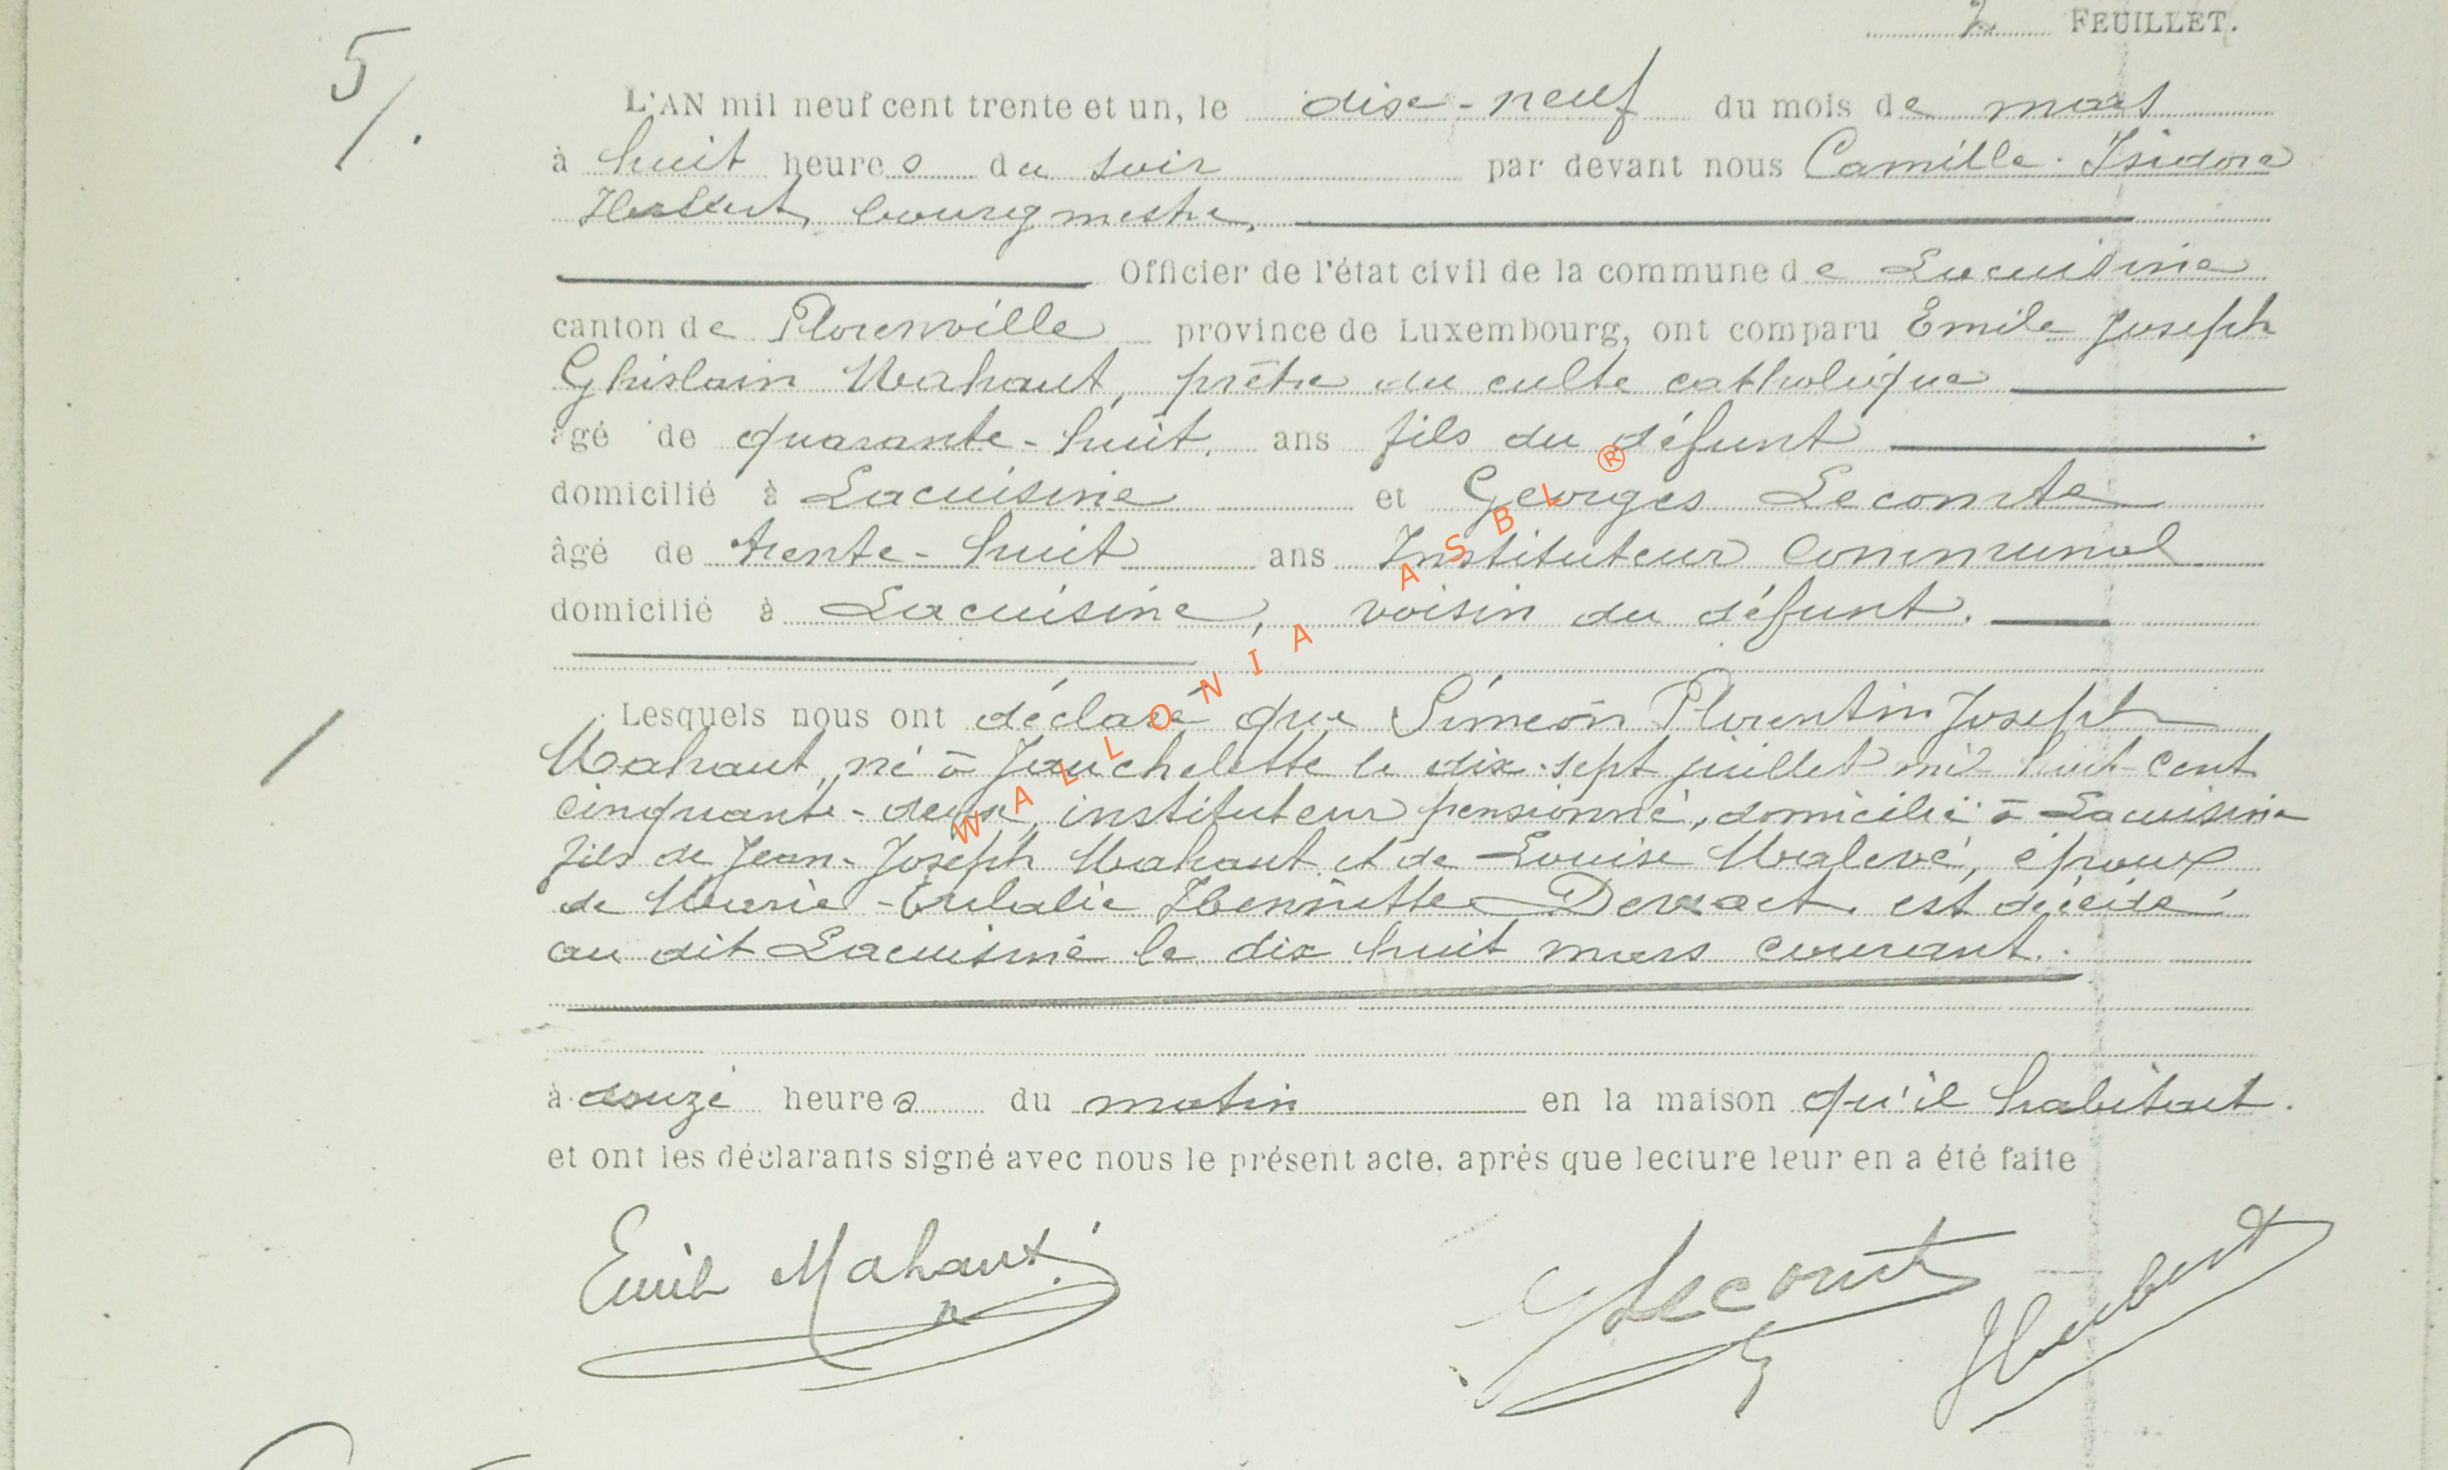 2 FEUILLET.
5/.
L'AN mil neuf cent trente et un, le dix-neuf du mois de mars
à huit heures du soir par devant nous Camille Isidore
bourgmestre,
Officier de l'état civil de la commune de Lacuisine
canton de Florenville province de Luxembourg, ont comparu Emile Joseph
Ghislain Mahaut, prêtre du culte catholique
âgé de quarante-huit. ans fils du défunt
domicilié à Lacuisine et Georges Lecomte
âgé de trente-huit ans Instituteur Communal
domicilié à Lacuisine, voisin du défunt.
Lesquels nous ont déclaré que Siméon Florentin Joseph
Mahaut, né à Jauchelette le dix-sept juillet mil huit cent
cinquante-deux, instituteur pensionné, domicilié à Lacuisine
fils de Jean-Joseph Mahaut et de Louise Malevé, époux
de Marie-Eulalie Henriette est décédé
au dit Lacuisine le dix huit mars courant.
à douze heures du matin en la maison qu'il habitait.
et ont les déclarants signé avec nous le présent acte, après que lecture leur en a été faite
Emile Mahaut
G Lecomte
WALLONIA ASBL ®